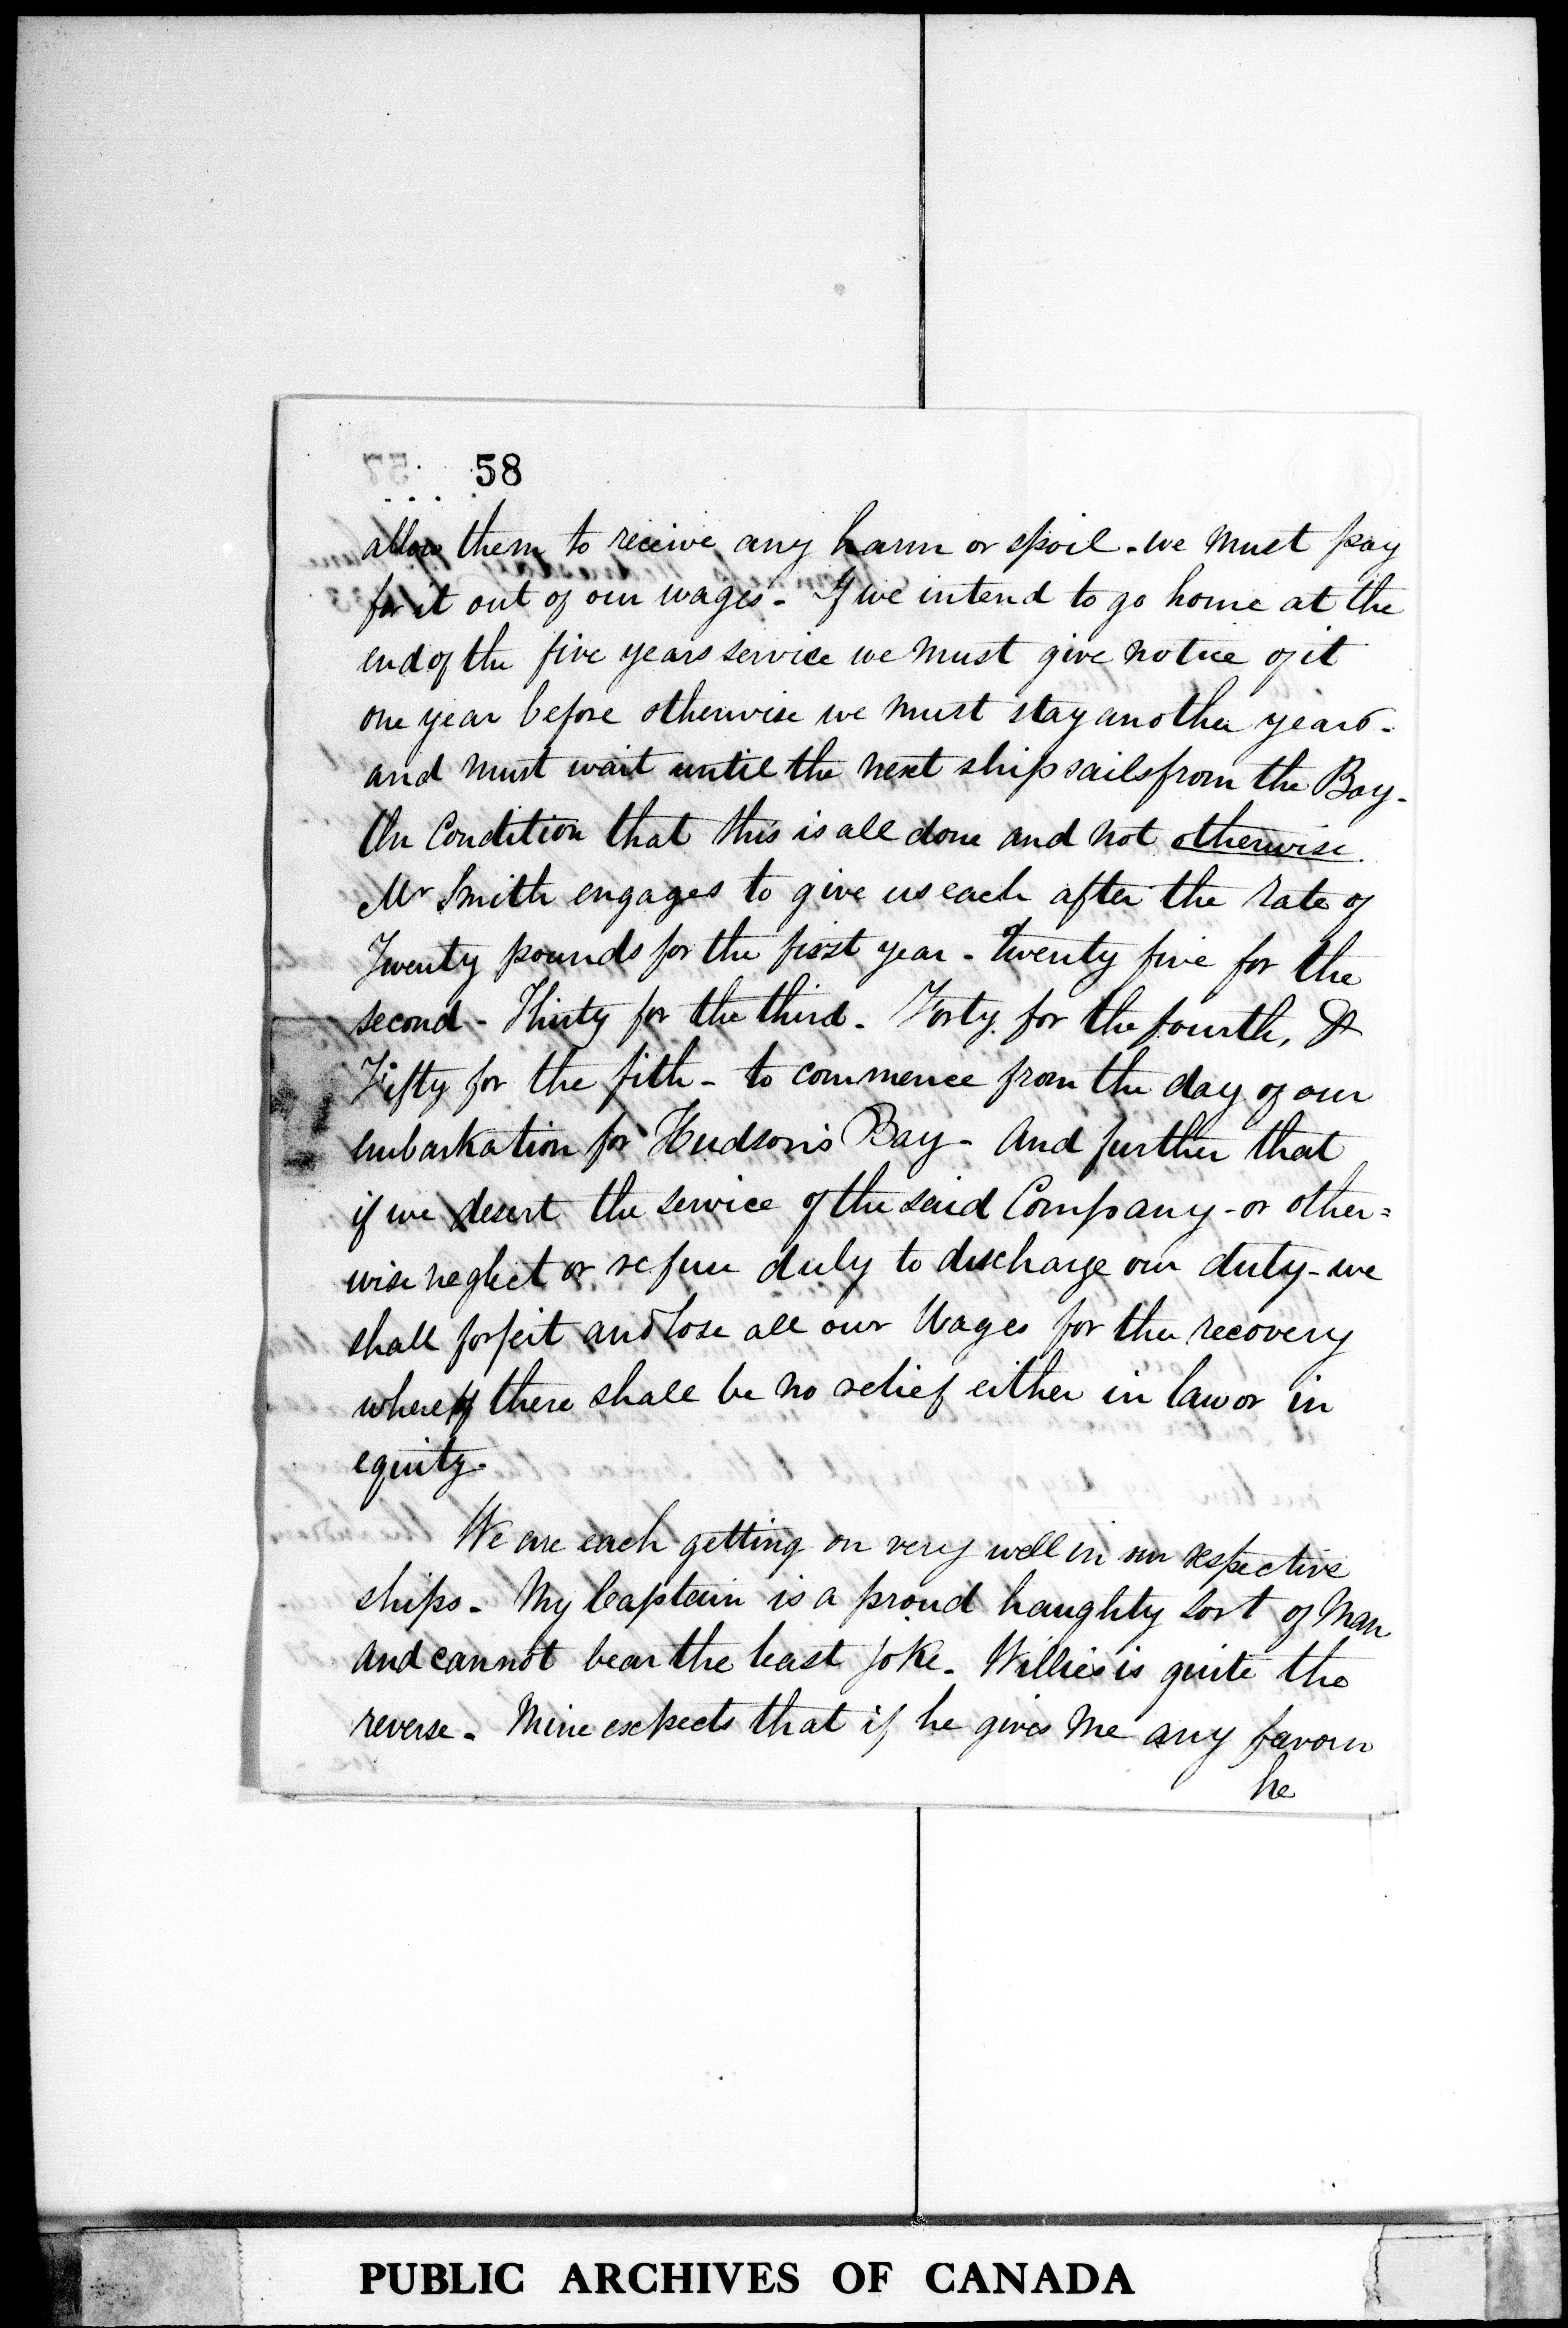 58
allow them to receive any harm or spoil - we must pay
for it out of our wages - If we intend to go home at the
end of the five years service we must give notice of it
one year before otherwise we must stay another years -
and must wait until the next ship sails from the Bay -
On Condition that this is all done and not otherwise.
Mr Smith engages to give us each after the rate of
Twenty pounds for the first year - Twenty five for the
second - Thirty for the third - Forty for the fourth, &
Fifty for the fith - to commence from the day of our
embarkation for Hudson's Bay - And further that
if we desert the service of the said Company - or other=
wise neglect or refuse duly to discharge our duty - we
shall forfeit and lose all our Wages for the recovery
whereof there shall be no relief either in law or in
equity.
We are each getting on very well in our respective
ships - My Captain is a proud haughty sort of Man
and cannot bear the least joke - Willies is quite the
reverse - Mine expects that if he gives me any favour
he
PUBLIC ARCHIVES OF CANADA